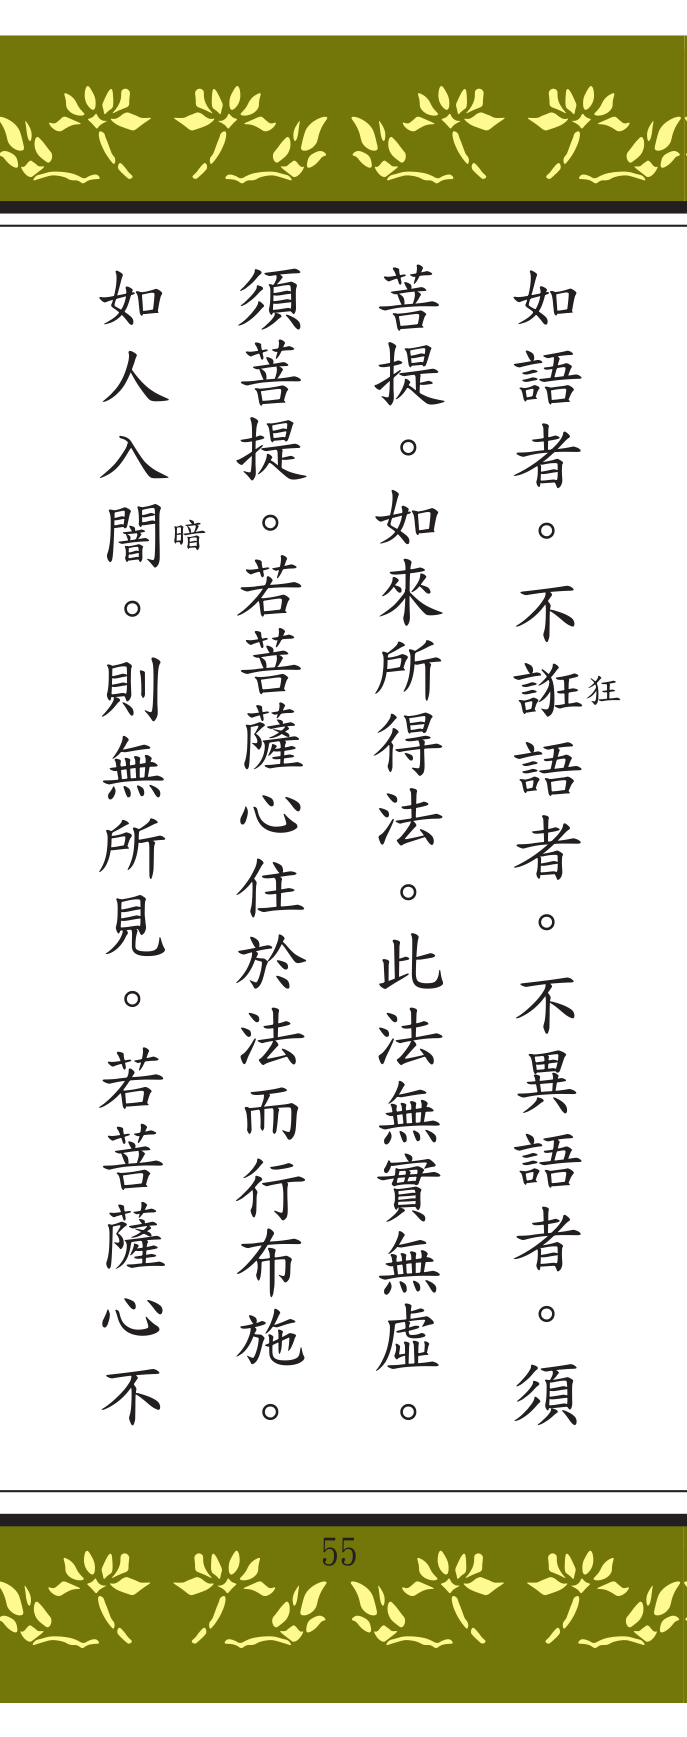 如語者。不誑狂語者。不異語者。須
菩提。如來所得法。此法無實無虛。
須菩提。若菩薩心住於法而行布施。
如人入闇暗。則無所見。若菩薩心不
55